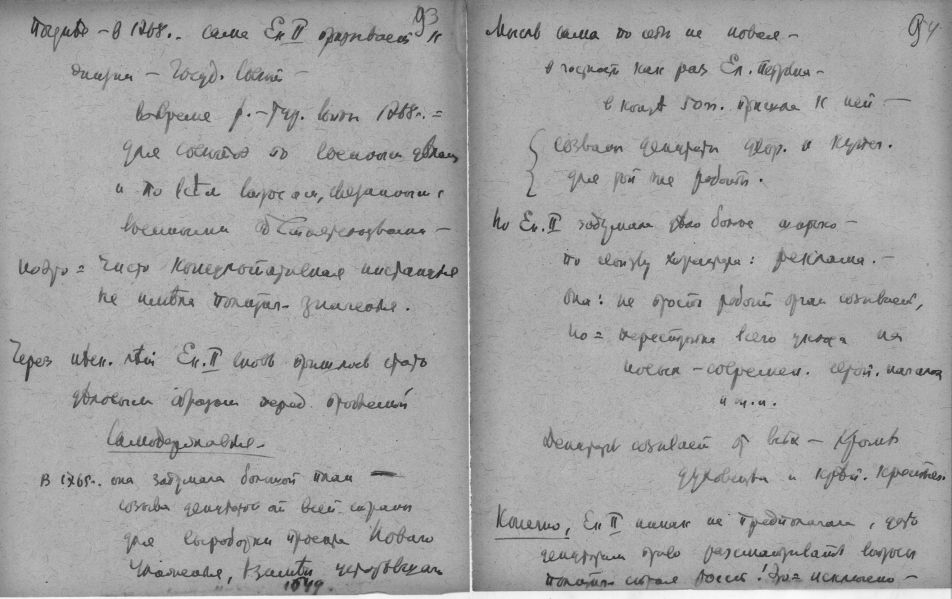 93
в 1768.. сама Ек. II призывает к
жизни – Госуд. Совет –
вовремя р.-тур. войны 1768г. =
для советов по военным делам
и по всѣм вопросам, связанным с
военными обстоятельствами –
но это = чисто консультативная инстанция
не имѣвшая политич. значения.
Через нѣск. лѣт Ек. II вновь пришлось стать
дѣловым образом перед проблемой
самодержавия.
В 1765.. она задумала большой план –
созыва депутатов от всей страны
для выработки проекта Нового
Уложения, взамѣн устаревшаго
1649.
94
Мысль сама по себѣ не новая –
в частности как раз Ел. Петровна –
в концѣ 50х. пришла к ней –
созвать депутатов двор. и купеч.
для той же работы.
Но Ек. II задумала дѣло более широко –
по своему характеру: реклама. –
она: не просто рабочий орган созывает,
но = перестройка всего уклада на
новых – современ. началах
и т.п.
Депутатов созывает от всѣх – кромѣ
духовенства и крѣп. крестьян
Конечно, Ек. II никак не предполагала, дать
депутатам право рассматривать вопросы
политич. строя России! Это = исключено –